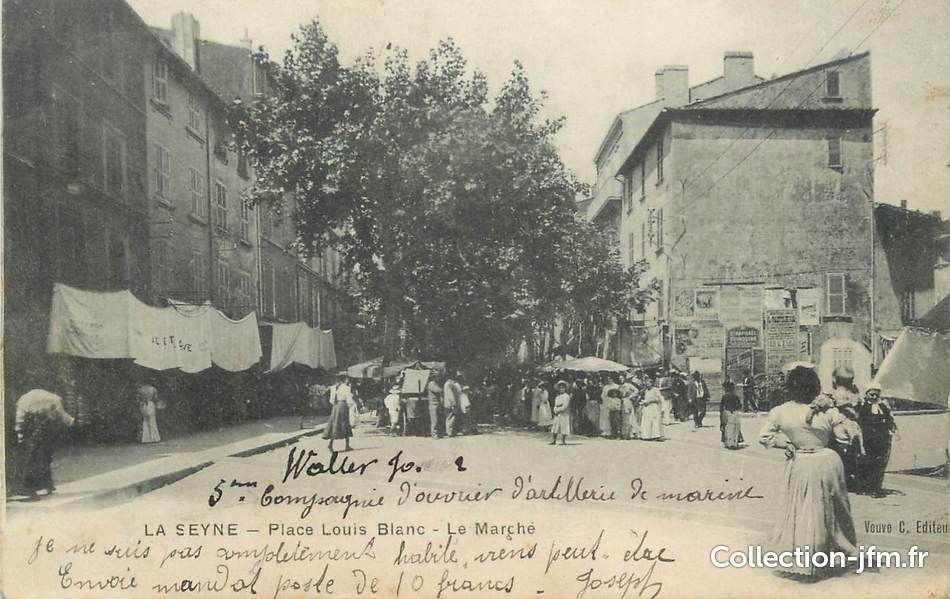 Walter Jo
5ème Compagnie d'ouvrier d'artillerie de marine
LA SEYNE — Place Louis Blanc - Le Marché
Veuve C. Editeu
je ne suis pas complètement habilé, viens peut-être
Envoie mandat poste de 10 francs - Joseph
Collection-jfm.fr